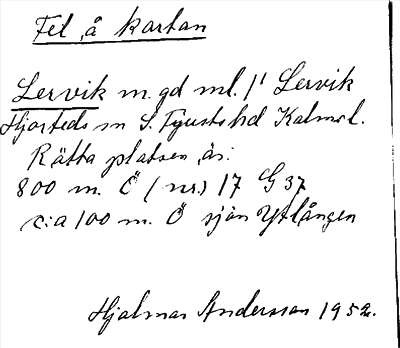 Fel å kartan
Lervik m. gd ml. /1 Lervik
Hjorteds sn S. Tjusts hd Kalm. l.
Rätta platsen är:
800 m. Ö (nr.) 17 G 37
c:a 100 m. Ö sjön Yxlången
Hjalmar Andersson 1952.